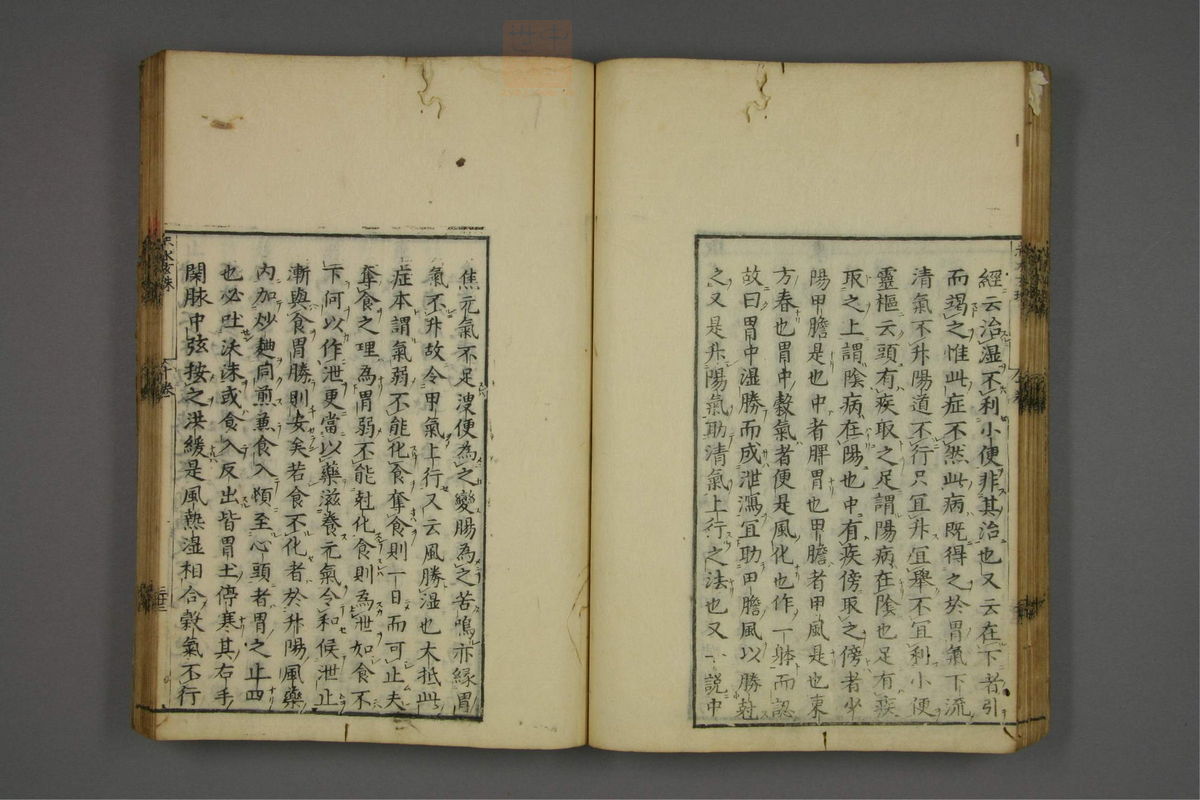 經云治湿不利小便非其治也又云在下者引
而竭之惟此症不然此病既得之於胃氣下流
清氣不升陽道不行只宜升宜舉不宜利小便
靈樞云頭有疾取之足謂陽病在陰也足有疾
取之上謂陰病在陽也中有疾傍取之傍者少
陽甲膽是也中者脾胃也甲膽者甲風是也東
方春也胃中穀氣者便是風化也作一躰而認
故曰胃中湿勝而成泄瀉宜助甲膽風以勝尅
之又是升陽氣助清氣上行之法也又一説中
焦元氣不足溲便為之變腸為之苦鳴亦縁胃
氣不升故令甲氣上行又云風勝湿也大抵此
症本謂氣弱不能化食奪食則一日而可止夫
奪食之理為胃弱不能尅化食則為泄如食不
下何以作泄更當以藥滋養元氣令和候泄止
漸與食胃勝則安矣若食不化者於升陽風藥
内加炒麯同煎兼食入頓至心頭者胃之上口
也必吐沃沫或食入反出皆胃土停寒其右手
関脉中弦按之洪緩是風熱湿相合穀氣不行